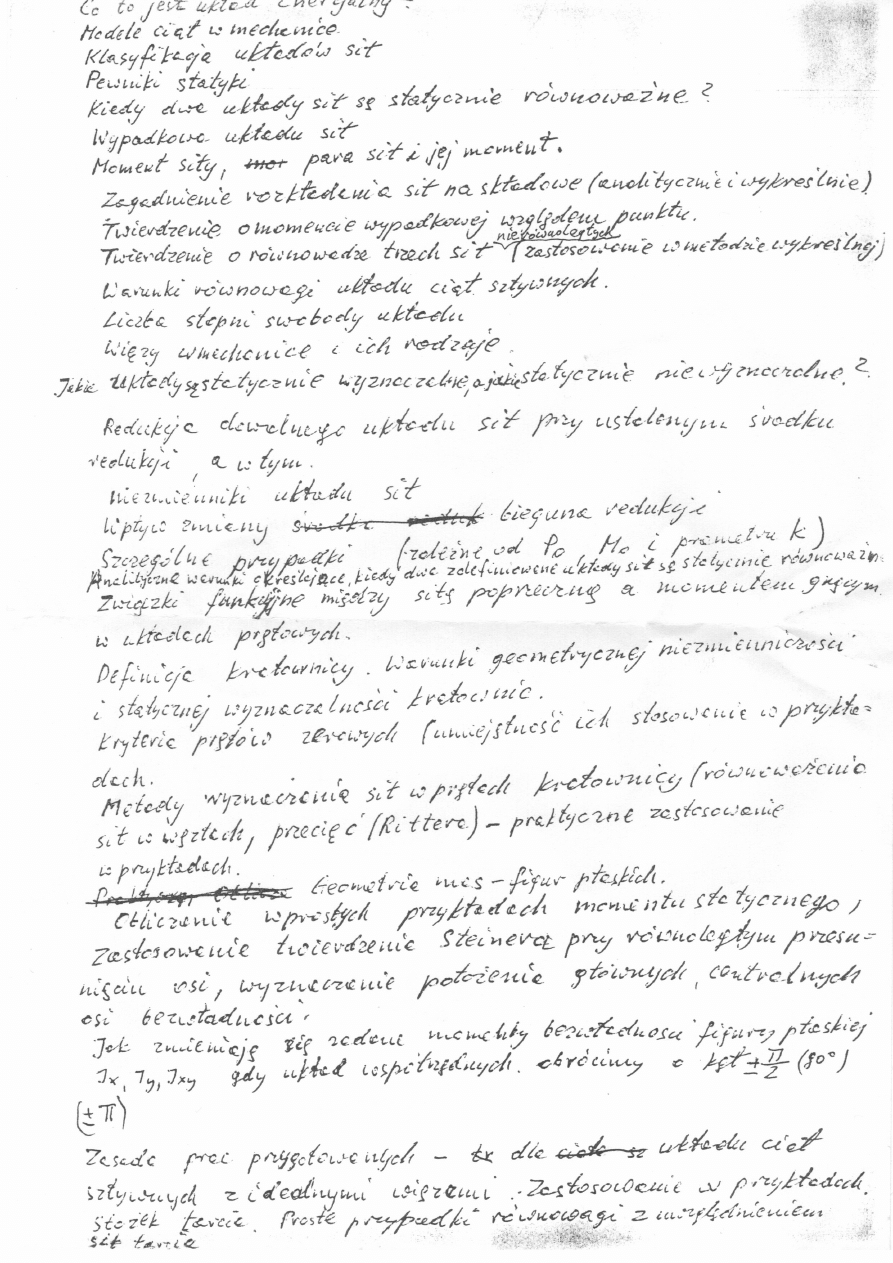 Co to jest układ inercjalny?
Modele ciał w mechanice.
Klasyfikacja układów sił
Pewniki statyki
Kiedy dwa układy sił są statycznie równoważne?
Wypadkowa układu sił
Moment siły, para sił i jej moment.
Zagadnienie rozkładania sił na składowe (analitycznie i wykreślnie)
Twierdzenie o momencie wypadkowej względem punktu.
Twierdzenie o równowadze trzech sił nierównoległych (zastosowanie w metodzie wykreślnej)
Warunki równowagi układu ciał sztywnych.
Liczba stopni swobody układu
Więzy w mechanice i ich rodzaje.
Jakie układy są statycznie wyznaczalne, a jakie statycznie niewyznaczalne?
Redukcja dowolnego układu sił przy ustalonym środku
redukcji, a w tym.
niezmienniki układu sił
Wpływ zmiany bieguna redukcji
Szczególne przypadki (zależne od Po, Mo i parametru k)
Analityczne warunki określające, kiedy dwa zdefiniowane układy sił są statycznie równoważne
Związki funkcyjne między siłą poprzeczną a momentem gnącym
w układach prętowych.
Definicja kratownicy. Warunki geometrycznej niezmienniczości
i statycznej wyznaczalności kratownic.
Kryteria prętów zerowych (umiejętność ich stosowania w przykła=
dach.
Metody wyznaczania sił w prętach kratownicy (równoważenia
sił w węzłach, przecięć (Rittera) – praktyczne zastosowanie
w przykładach.
Geometria mas – figur płaskich.
Obliczanie w prostych przykładach momentu statycznego,
Zastosowanie twierdzenia Steinera przy równoległym przesu=
nięciu osi, wyznaczanie położenia głównych, centralnych
osi bezwładności.
Jak zmieniają się zadane momenty bezwładności figury płaskiej
Jx, Jy, Jxy gdy układ współrzędnych obrócimy o kąt ± π/2 (90°)
(± π)
Zasada prac przygotowanych – dla układu ciał
sztywnych z idealnymi więzami. Zastosowanie w przykładach.
Stożek tarcia. Proste przypadki równowagi z uwzględnieniem
sił tarcia